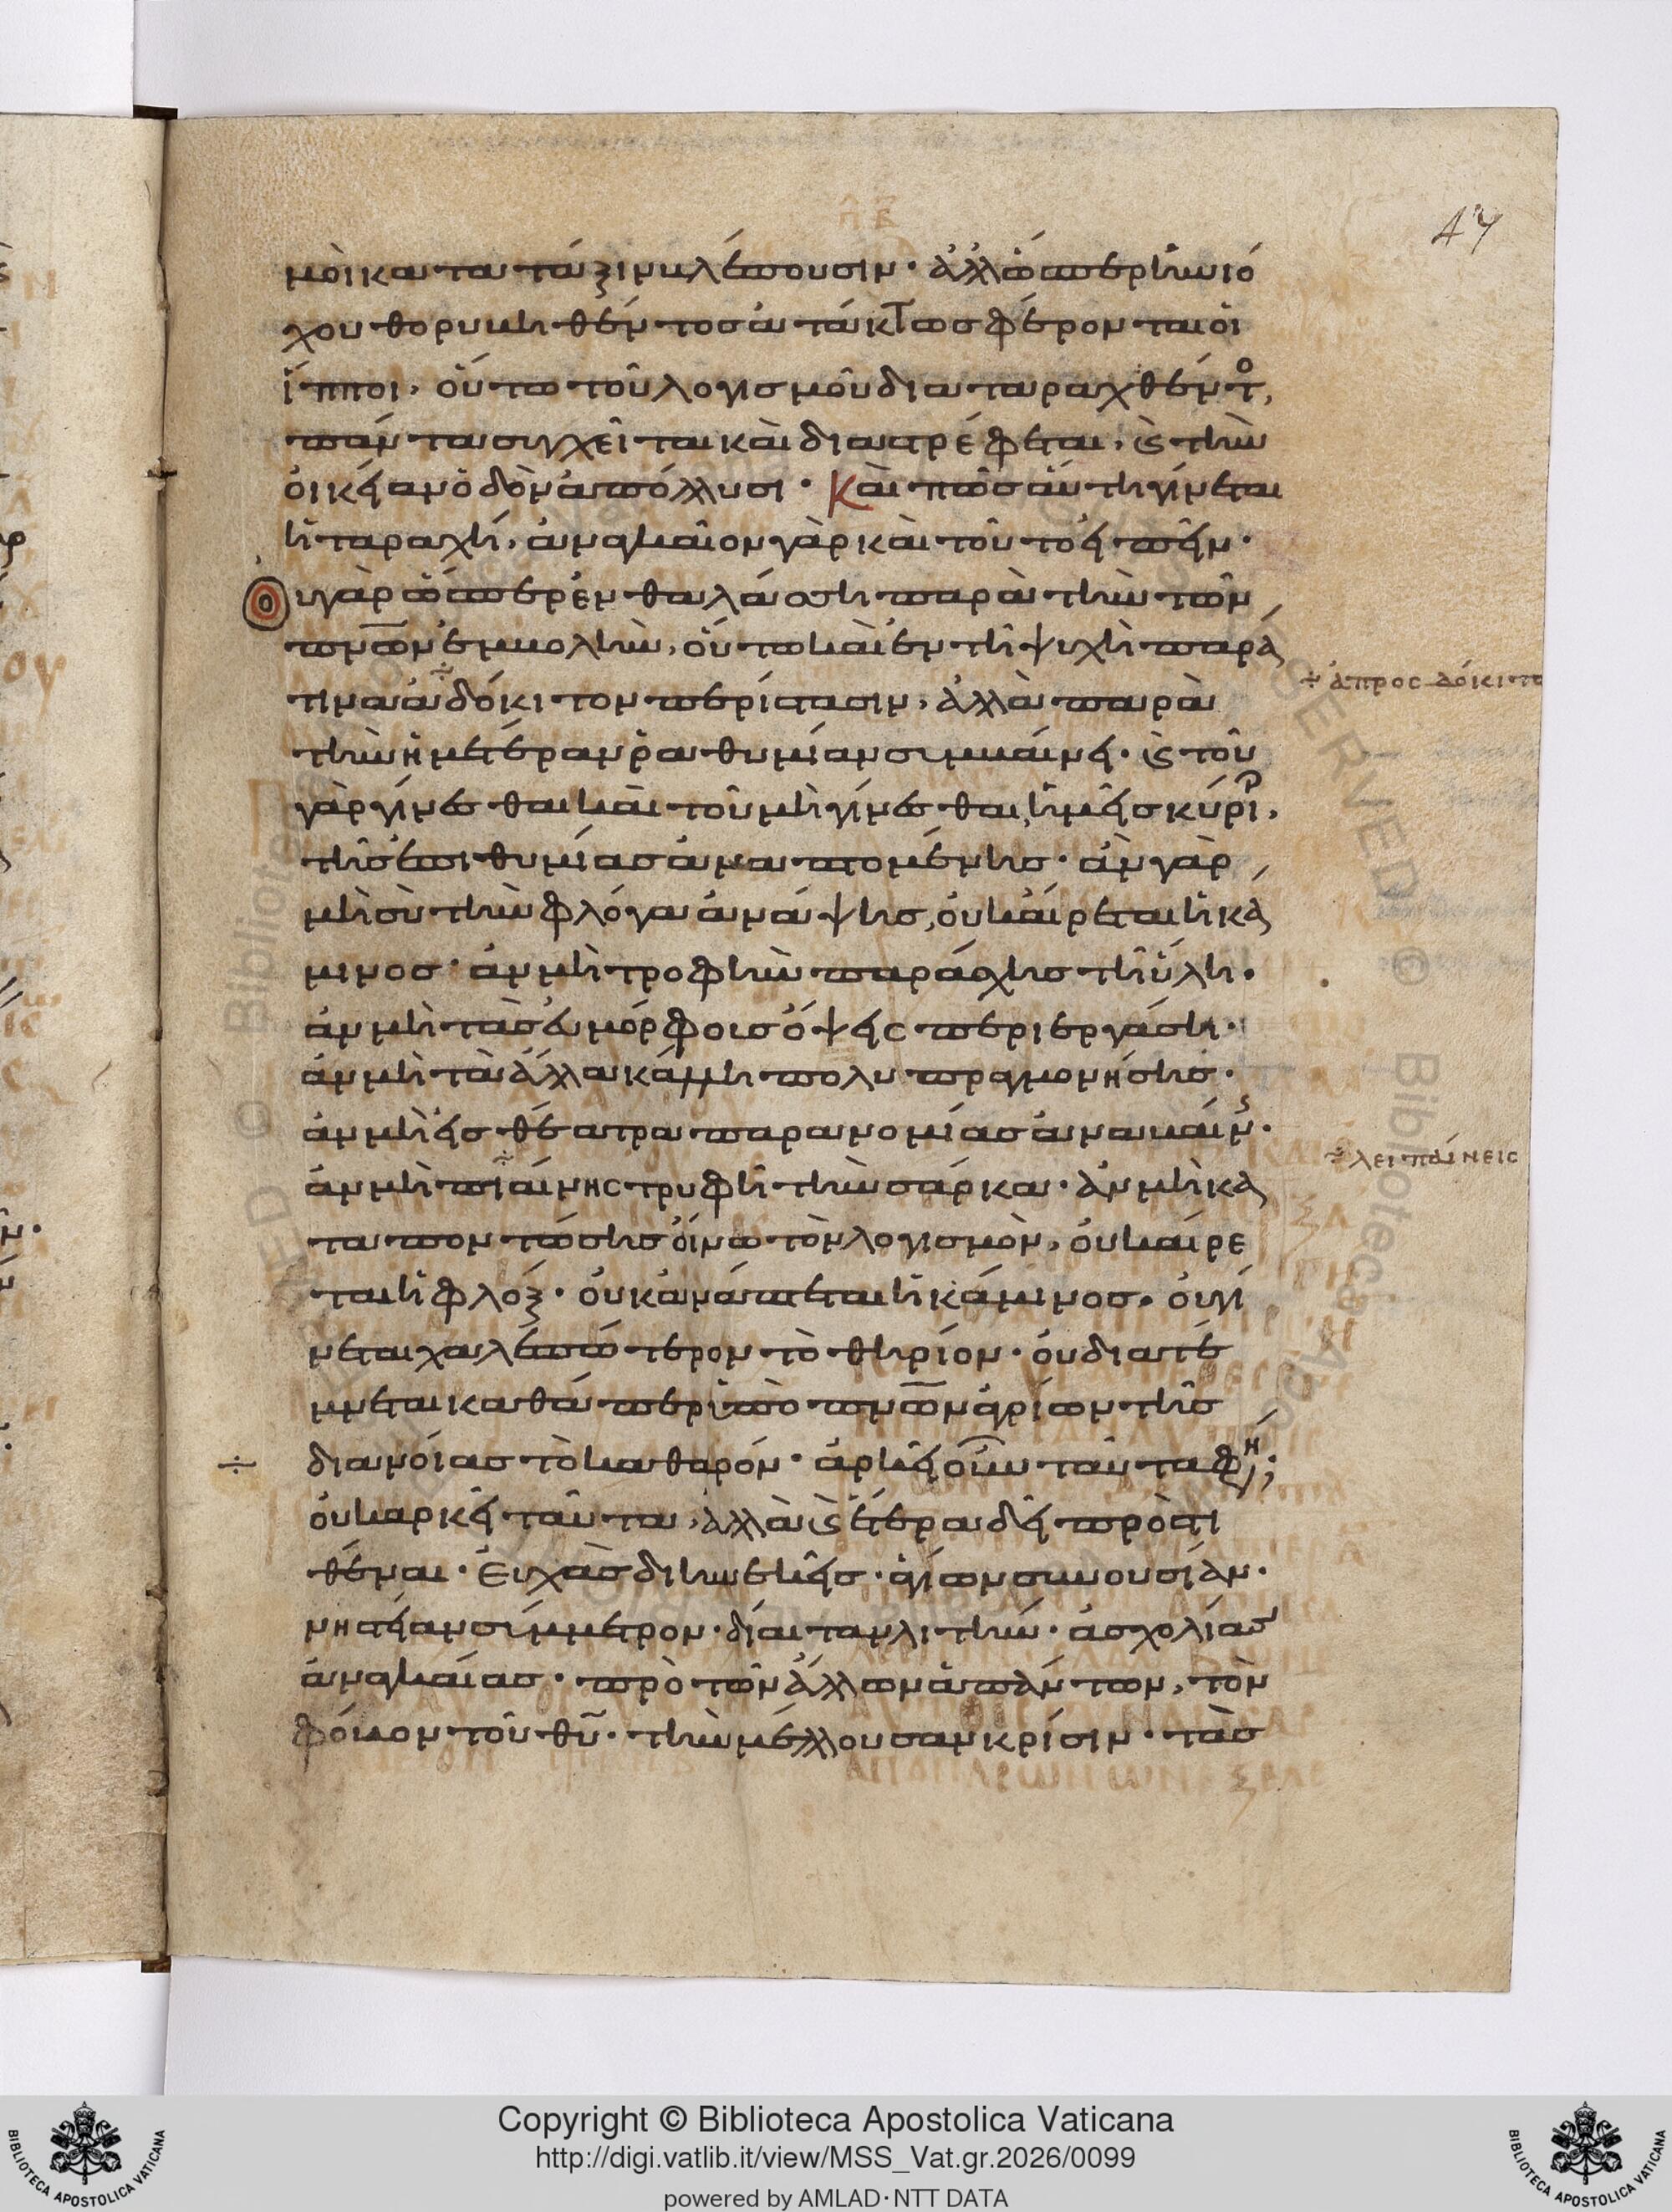 47
μοὶ κατὰ τάξιν βλέπουσιν· ἀλλ' ὥσπερ ἡνιό
χου θορυβηθέντος ἀτάκτως φέρονται οἱ
ἵπποι, οὕτω τοῦ λογισμοῦ διαταραχθέντος,
πάντα συγχεῖται καὶ διαστρέφεται, καὶ τὴν
οἰκείαν ὁδὸν ἀπόλλυσι· Καὶ πῶς αὕτη γίνεται
ἡ ταραχή, ἀναγκαῖον γὰρ καὶ τοῦτο εἰπεῖν·
Ου γὰρ ὥσπερ ἐν θαλάσση παρὰ τὴν τῶν
πνων ἐμβολὴν, οὕτω καὶ ἐν τῇ ψυχῇ παρά
τινα ἀδόκιτον περίστασιν, ἀλλὰ παρὰ
τὴν ἡμετέραν ῥαθυμίαν συμβαίνει· καὶ τοῦ
γὰρ γίνεσθαι καὶ τοῦ μὴ γίνεσθαι, ἡμεῖς κύριοι,
τῆς ἐπιθυμίας ἀναπτομένης· ἂν γὰρ
μὴ σὺ τὴν φλόγα ἀνάψης, οὐκ αἴρεται ἡ κά
μινος· ἂν μὴ τροφὴν παράσχης τῇ ὕλη·
ἂν μὴ τὰς εὐμόρφοις ὄψεις περιεργάση·
ἂν μὴ τὰ ἄλλα κάλλη πολυπραγμονήσης·
ἂν μὴ εἰς θέατρα παρανομίας ἀναβαίνεις·
ἂν μὴ πιαίνης τρυφῇ τὴν σάρκα· ἂν μὴ κα
ταποντώσης οἴνω τὸν λογισμὸν, οὐκ αἴρε
ται ἡ φλόξ· οὐκ ἀνάπτεται ἡ κάμινος· οὐ γί
νεται χαλεπώτερον τὸ θηρίον· οὐ διατέ
μνεται καθάπερ ὑπὸ πνων ἀγρίων τῆς
διανοίας τὸ καθαρόν· ἀρκεῖ οὖν ταῦτα φη;
οὐκ ἀρκεῖ ταῦτα, ἀλλὰ καὶ ἕτερα δεῖ προστι
θέναι· Εὐχὰς διηνεκεῖς· ἁγίων συνουσίαν·
νηστείαν σύμμετρον· δίαιταν λιτήν· ἀσχολίας
ἀναγκαίας· πρὸ τῶν ἄλλων ἁπάντων, τὸν
φόβον τοῦ θυ· τὴν μέλλουσαν κρίσιν· τὰς
÷ ἀπροσδόκιτο
÷ λειπαίνεις
Copyright © Biblioteca Apostolica Vaticana
http://digi.vatlib.it/view/MSS_Vat.gr.2026/0099
powered by AMLAD·NTT DATA
BIBLIOTECA APOSTOLICA VATICANA
BIBLIOTECA APOSTOLICA VATICANA